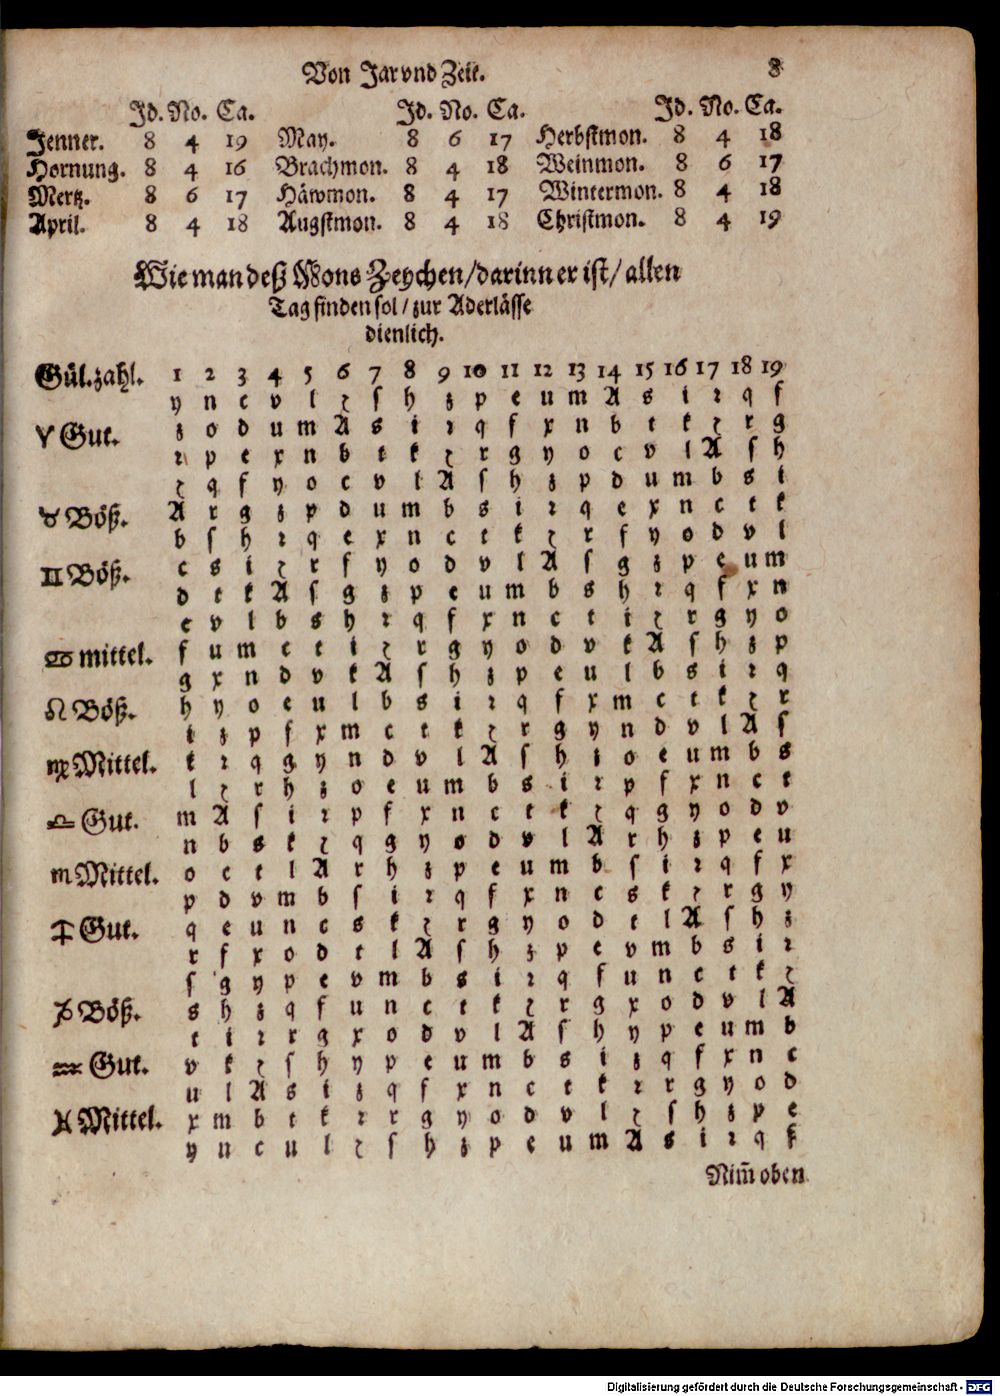 Von Jar vnd Zeit. 8
Jd. No. Ca. Jd. No. Ca. Jd. No. Ca.
Jenner. 8 4 19 May. 8 6 17 Herbstmon. 8 4 18
Hornung. 8 4 16 Brachmon. 8 4 18 Weinmon. 8 6 17
Mertz. 8 6 17 Häwmon. 8 4 17 Wintermon. 8 4 18
April. 8 4 18 Augstmon. 8 4 18 Christmon. 8 4 19
Wie man deß Mons Zeychen / darinn er ist / allen
Tag finden sol / zur Aderlässe
dienlich.
Gül.zahl. 1 2 3 4 5 6 7 8 9 10 11 12 13 14 15 16 17 18 19
y n c v l ꝛ ſ h z p e u m A s i r q f
♈ Gut. z o d u m A s i r q f x n b t k ꝛ r g
r p e x n b t k ꝛ r g y o c v l A ſ h
ꝛ q f y o c v l A ſ h z p d u m b s i
♉ Böß. A r g z p d u m b s i r q e x n c t k
b ſ h r q e x n c t k ꝛ r f y o d v l
♊ Böß. c s i ꝛ r f y o d v l A ſ g z p e u m
d t k A ſ g z p e u m b s h r q f x n
e v l b s h r q f x n c t i ꝛ r g y o
♋ mittel. f u m c t i ꝛ r g y o d v k A ſ h z p
g x n d v k A ſ h z p e u l b s i r q
♌ Böß. h y o e u l b s i r q f x m c t k ꝛ r
i z p f x m c t k ꝛ r g y n d v l A ſ
♍ Mittel. k r q g y n d v l A ſ h z o e u m b s
l ꝛ r h z o e u m b s i r p f x n c t
♎ Gut. m A ſ i r p f x n c t k ꝛ q g y o d v
n b s k ꝛ q g y o d v l A r h z p e u
♏ Mittel. o c t l A r h z p e u m b ſ i r q f x
p d v m b ſ i r q f x n c s k ꝛ r g y
♐ Gut. q e u n c s k ꝛ r g y o d t l A ſ h z
r f x o d t l A ſ h z p e v m b s i r
ſ g y p e v m b s i r q f u n c t k ꝛ
♑ Böß. s h z q f u n c t k ꝛ r g x o d v l A
t i r r g x o d v l A ſ h y p e u m b
♒ Gut. v k ꝛ ſ h y p e u m b s i z q f x n c
u l A s i z q f x n c t k r r g y o d
♓ Mittel. x m b t k r r g y o d v l ꝛ ſ h z p e
y n c u l ꝛ ſ h z p e u m A s i r q f
Nim̄ oben
Digitalisierung gefördert durch die Deutsche Forschungsgemeinschaft - DFG